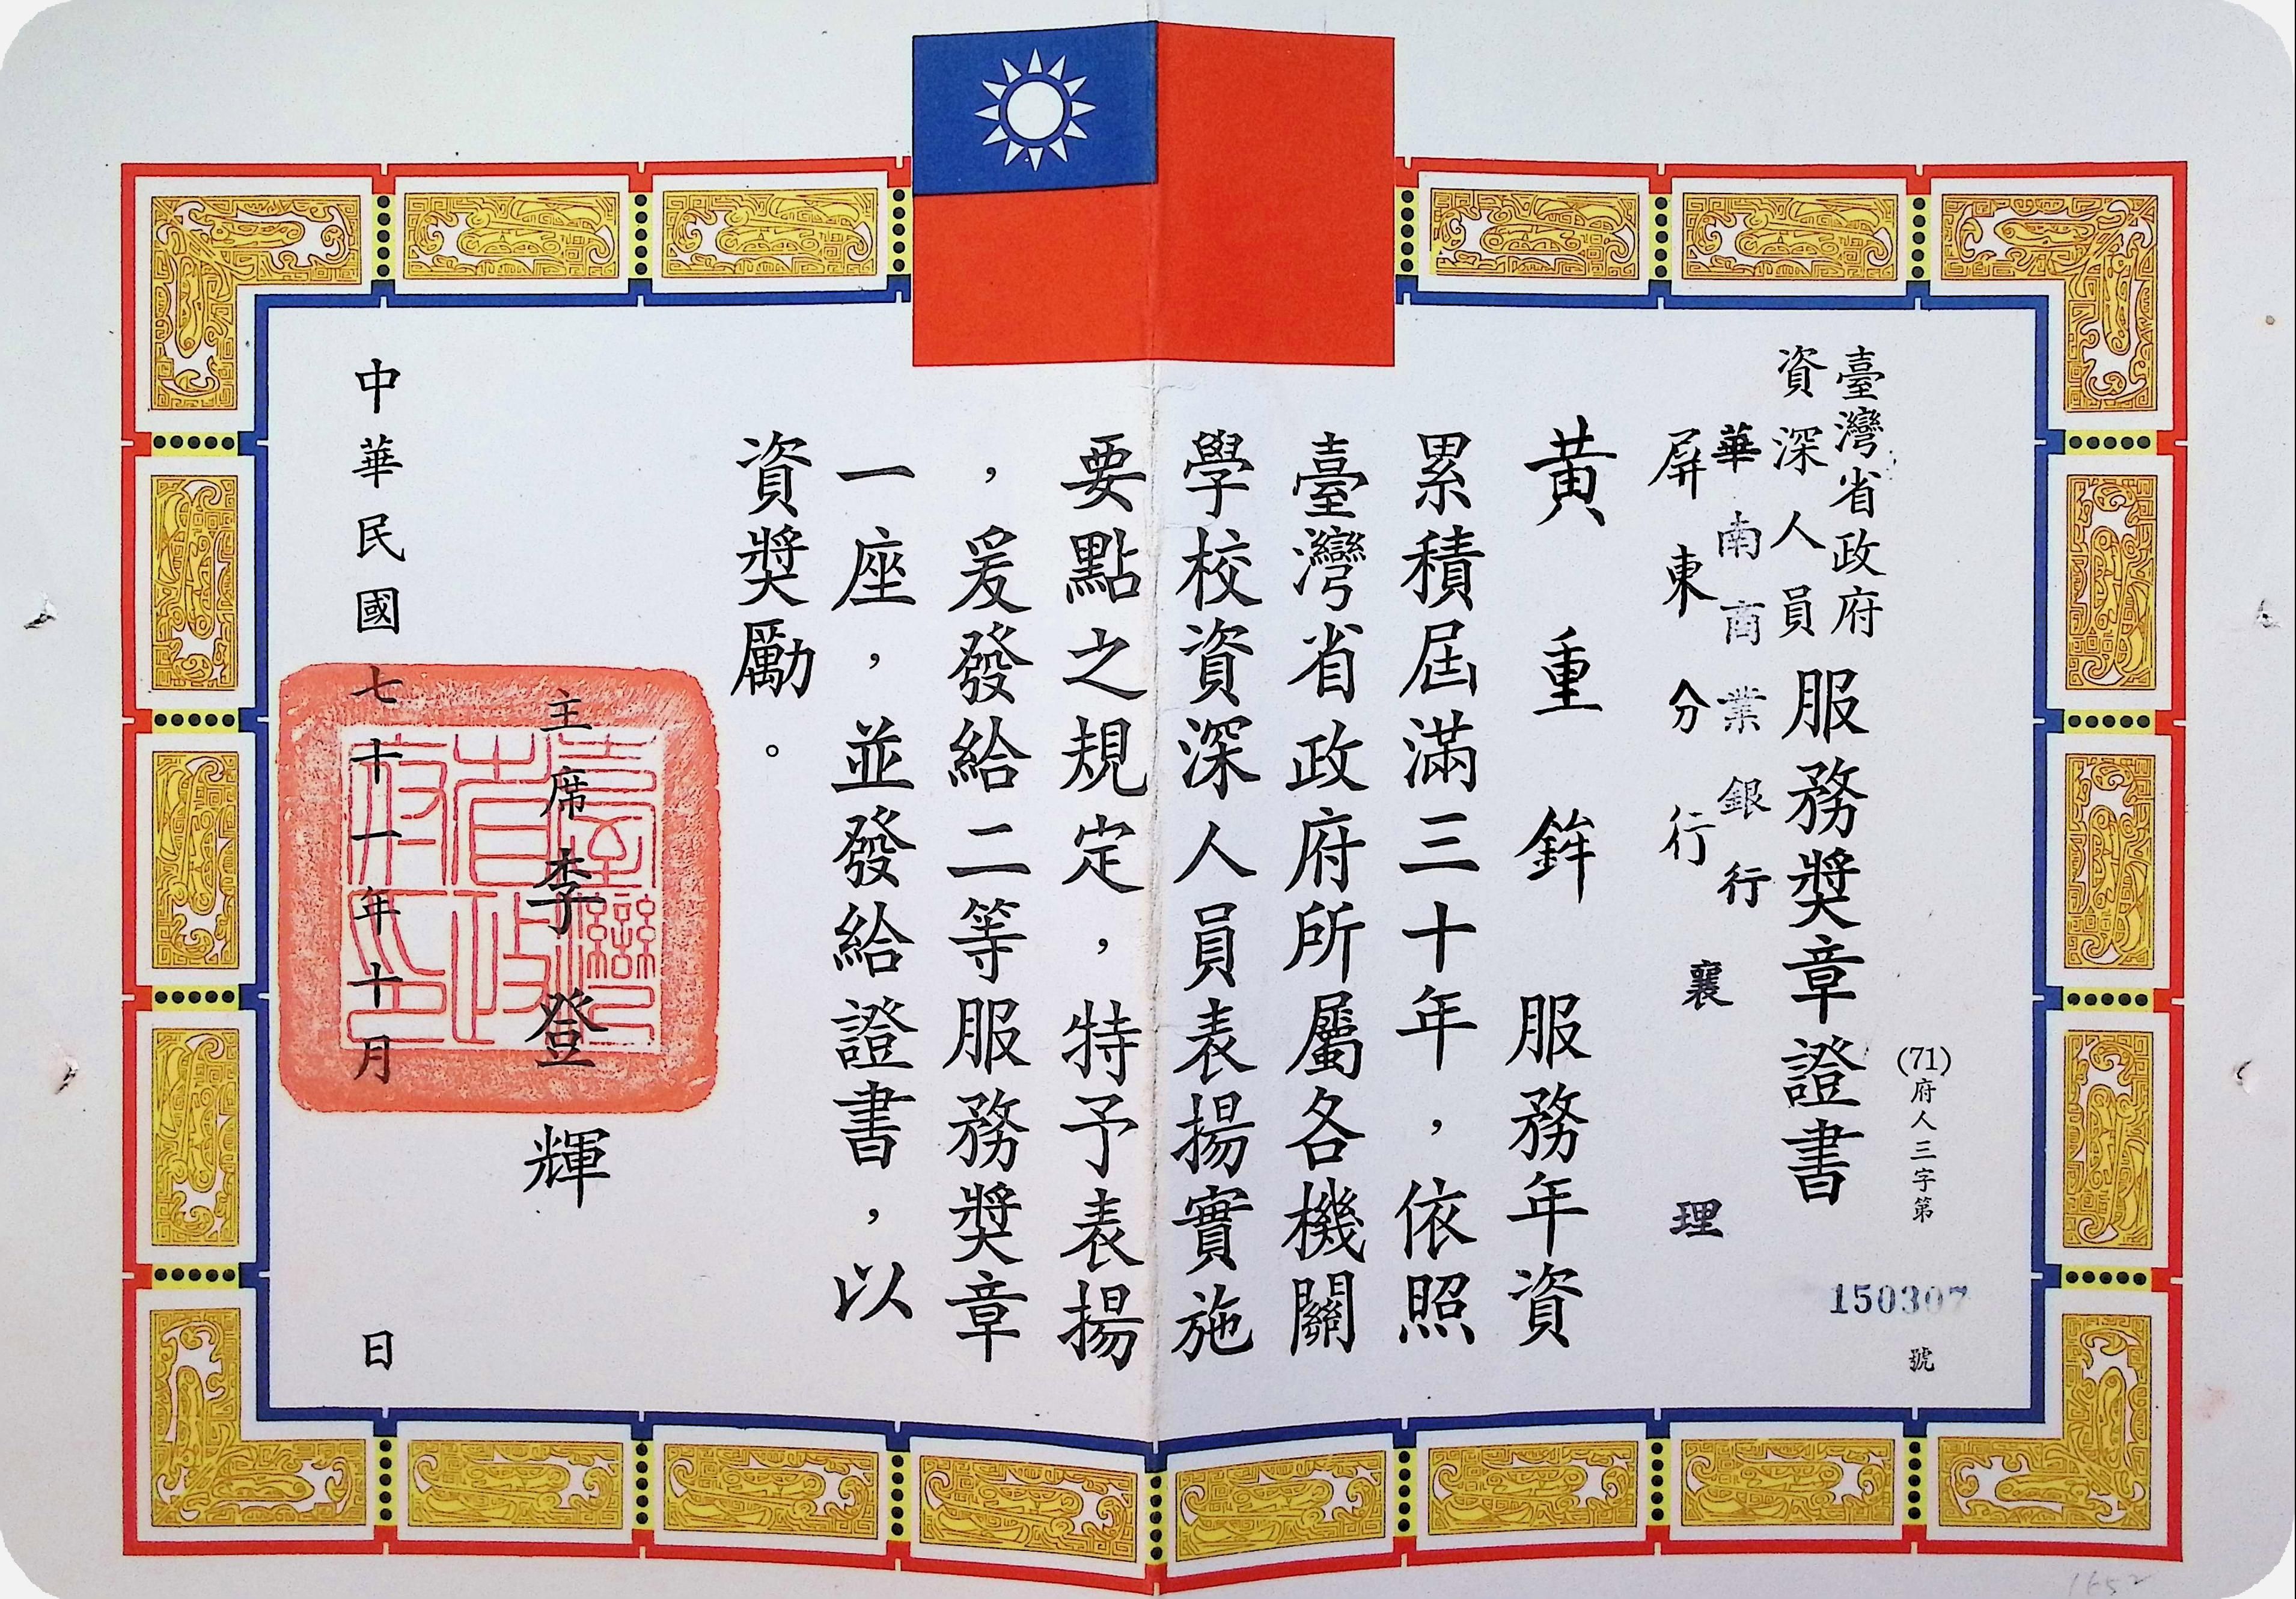 臺灣省政府
資深人員
服務獎章證書
(71)府人三字第
150307
號
華南商業銀行
屏東分行 襄理
黃重鉾 服務年資
累積屆滿三十年，依照
臺灣省政府所屬各機關
學校資深人員表揚實施
要點之規定，特予表揚
，爰發給二等服務獎章
一座，並發給證書，以
資獎勵。
主席 李登輝
中華民國七十一年十月 日
臺灣省政府印